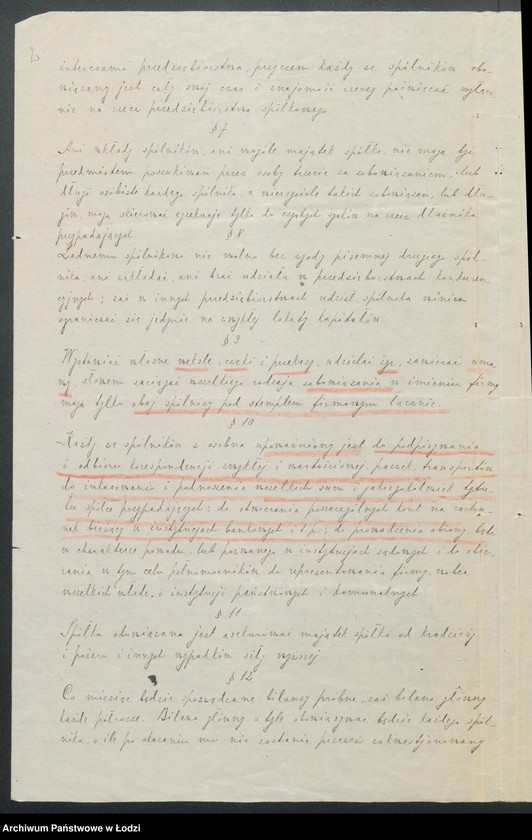 2
interesami przedsiębiorstwa, przyczem każdy ze spólników obo-
wiązany jest cały swój czas i znajomość rzeczy poświęcać wyłącz-
nie na rzecz przedsiębiorstwa spółkowego
§ 7
Ani wkłady spólników, ani wogóle majątek spółki, nie mogą być
przedmiotem poszukiwań przez osoby trzecie za zobowiązania, lub
długi osobiste każdego spólnika, a wierzyciele takich zobowiązań, lub dłu-
gów, mogą skierować egzekucję tylko do czystych zysków na rzecz dłużnika
przypadających
§ 8
Żadnemu spólnikowi nie wolno bez zgody pisemnej drugiego spól-
nika, ani zakładać, ani brać udziału w przedsiębiorstwach konkuren-
cyjnych; zaś w innych przedsiębiorstwach udział spólnika winien
ograniczać się jedynie na zwykłej lokaty kapitałów.
§ 9
Wystawiać własne weksle, czeki i przekazy, udzielać żyr, zawierać umo-
wy, słowem zaciągać wszelkiego rodzaju zobowiązania w imieniu firmy
mogą tylko obaj spólnicy pod stemplem firmowym łącznie.
§ 10
Każdy ze spólników z osobna upoważniony jest do podpisywania
i odbioru korespondencji zwykłej i wartościowej, paczek, transportów
do inkasowania i podnoszenia wszelkich sum z jakiegokolwiek tytu-
łu spółce przypadających; do otwierania poszczególnych kont na rachu-
nek bieżący w instytucjach bankowych i t.p.; do prowadzenia obrony bądź
w charakterze powoda, lub pozwanego w instytucjach sądowych i do obie-
rania w tym celu pełnomocników do reprezentowania firmy wobec
wszelkich władz i instytucji państwowych i komunalnych
§ 11
Spółka obowiązana jest asekurować majątek spółki od kradzieży
i pożaru i innych wypadków siły wyższej.
§ 12
Co miesiąc będzie sporządzane bilansy próbne, zaś bilans główny
każde półrocze. Bilans główny o tyle obowiązywać będzie każdego spól-
nika, o ile po okazaniu mu, nie zostanie przezeń zakwestjonowany
Archiwum Państwowe w Łodzi